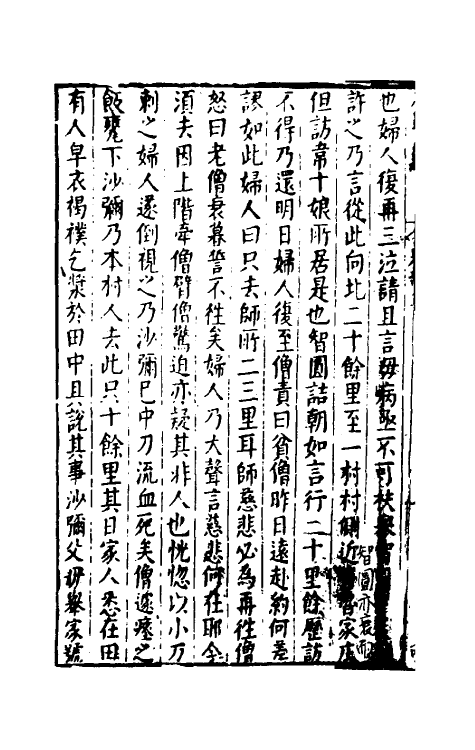 也婦人復再三泣請且言母病亟不可扶舉智圓亦哀而
許之乃言從此向北二十餘里至一村村側近有家庄
但訪韋十娘所居是也智圓詰朝如言行二十里餘歷訪
不得乃還明日婦人復至僧責曰貧僧昨日遠赴約何差
謬如此婦人曰只去師所二三里耳師慈悲必為再往僧
怒曰老僧衰暮誓不徃矣婦人乃大聲言慈悲何在耶今
須去因上階牽僧臂僧驚迫亦疑其非人也恍惚以小刀
刺之婦人遂倒視之乃沙彌巳中刀流血死矣僧遽瘞之
飯甕下沙彌乃本村人去此只十餘里其日家人悉在田
有人皁衣褐襆乞漿於田中且說其事沙彌父母舉家號